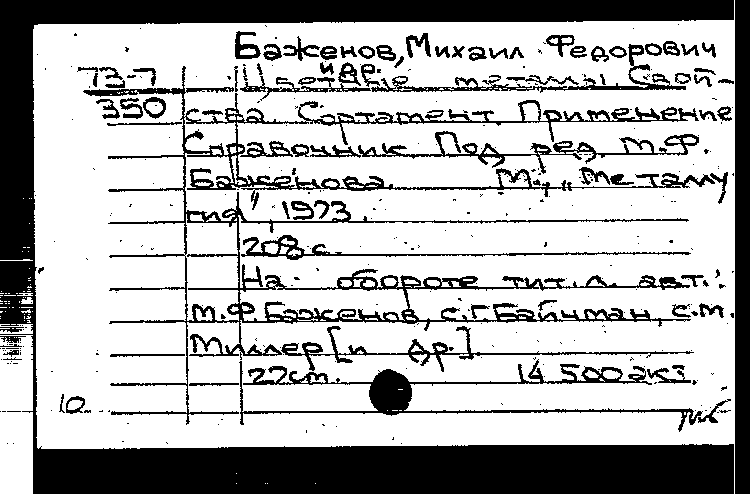 Баженов, Михаил Федорович
и др.
73-7 Цветные металлы. Свой-
350 ства. Сортамент. Применение
Справочник. Под ред. М.Ф.
Баженова. М., „Металлу
гия", 1973.
208 с.
На обороте тит. л. авт.:
М.Ф. Баженов, С.Г. Байчман, С.М.
Миллер [и др.].
22 см. 14 500 экз.
10